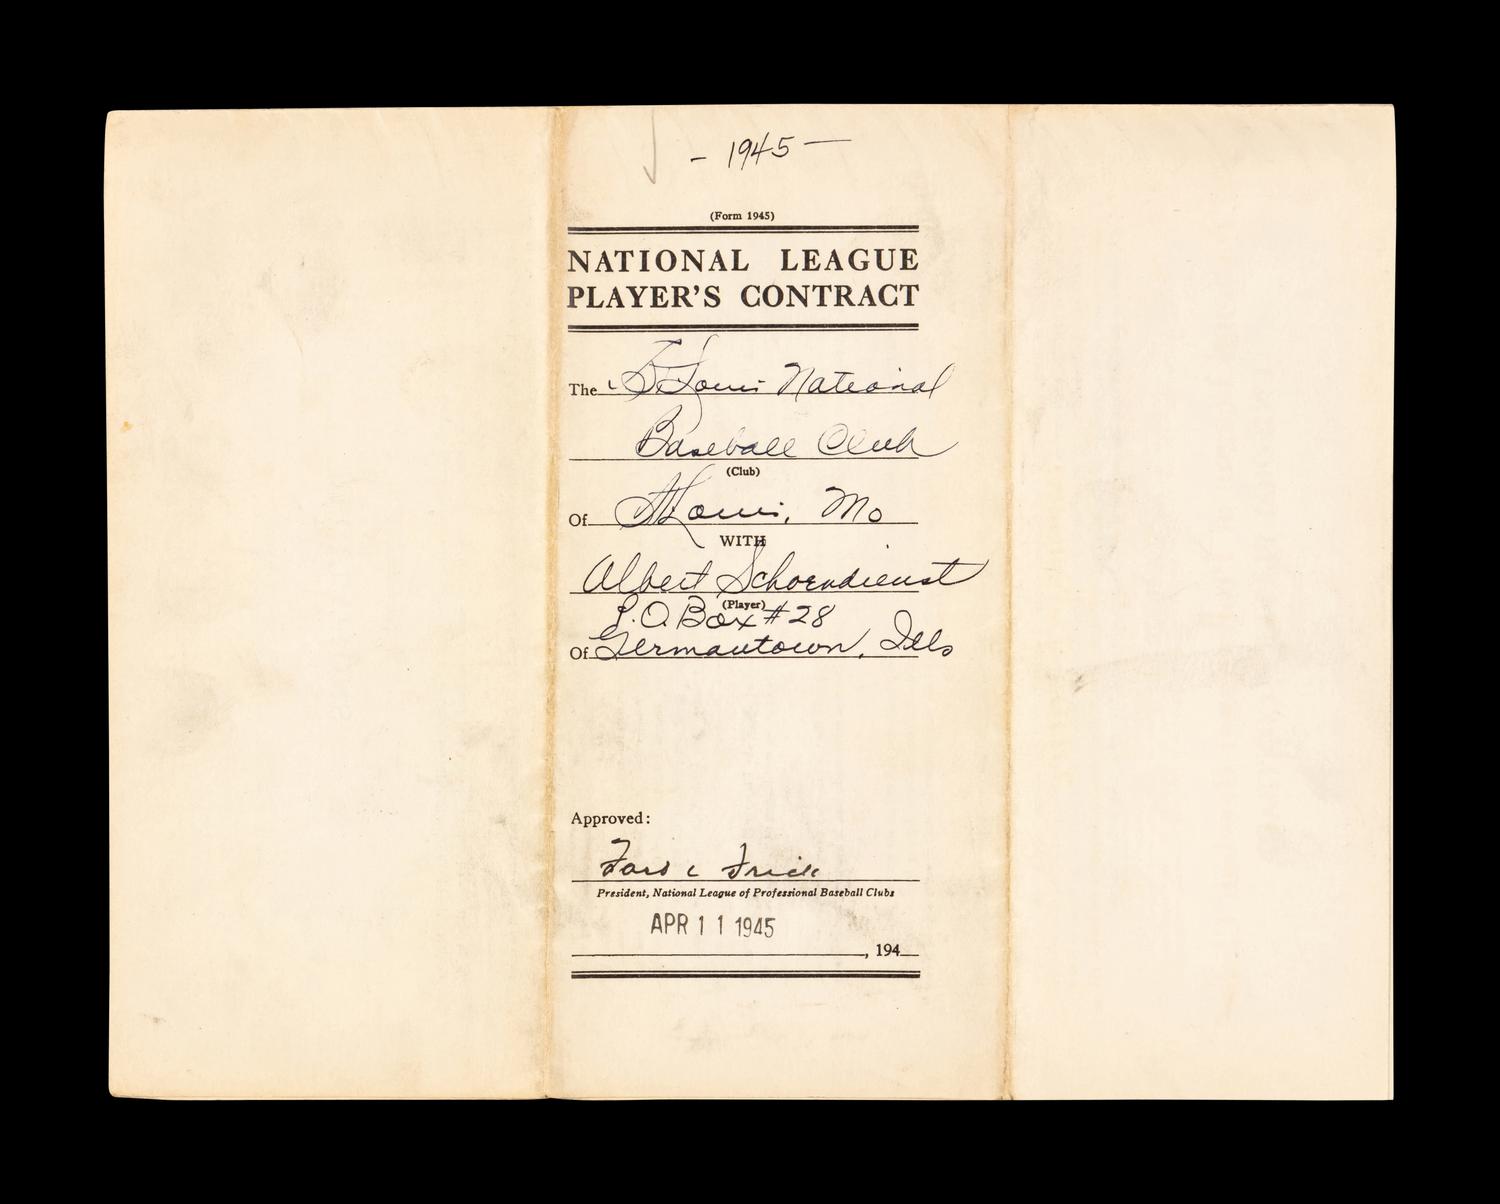 - 1945 -
(Form 1945)
NATIONAL LEAGUE
PLAYER'S CONTRACT
The St. Louis National
Baseball Club
(Club)
Of St Louis, Mo
WITH
Albert Schoendienst
(Player)
P.O. Box #28
Of Germantown, Ills
Approved:
Ford C Frick
President, National League of Professional Baseball Clubs
APR 11 1945
, 194